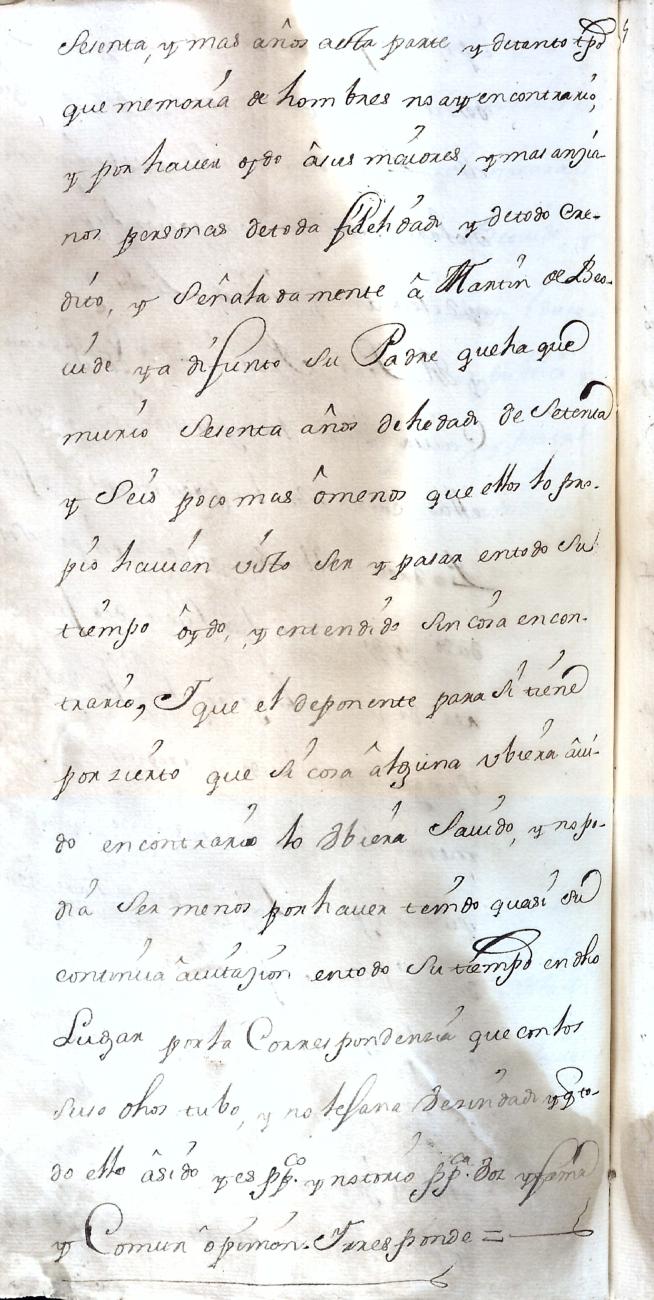 sesenta, y mas años aesta parte y detanto tpõ
que memoria de hombres no ay encontrario,
y por haver oydo âsus maiores, y mas anzia-
nos personas detoda fidelidad y detodo cre-
dito, y señaladamente â Martin de Beo-
uide ya difunto su Padre queha que
murio sesenta años dehedad de setenta
y seis poco mas ômenos que ellos lo pro-
pio hauian visto ser y pasar entodo su
tiempo ôydo, y entendido sin cosa encon-
trario, Y que el deponente para si tiene
por zierto que si cosa âlguna vbiera âui-
do encontrario lo vbiera sauido, y no po-
dia ser menos por haver tenido quasi su
continua âuitazion entodo su tiempo en dho
Lugar por la Correspondenzia que con los
suso dhos tubo, y notesana Bezindad y q to-
do ello âsido y es pp.co y notorio pp.ca Boz y fama
y Comun ôpinion. Y responde =